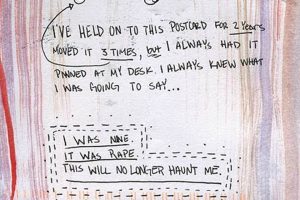 I'VE HELD ON TO THIS POSTCARD FOR 2 YEARS
MOVED IT 3 TIMES, but I ALWAYS HAD IT
PINNED AT MY DESK. I ALWAYS KNEW WHAT
I WAS GOING TO SAY...
I WAS NINE.
IT WAS RAPE.
THIS WILL NO LONGER HAUNT ME.